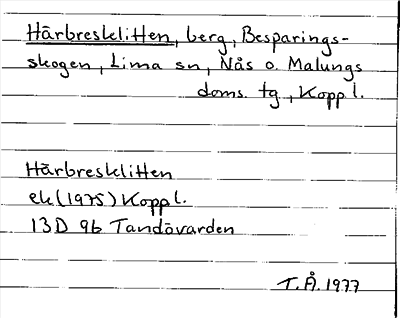 Härbresklitten, berg, Besparings-
skogen, Lima sn, Nås o. Malungs
doms. tg, Koppl.
Härbresklitten
ek (1975) Koppl.
13D 9b Tandövarden
T.Å. 1977